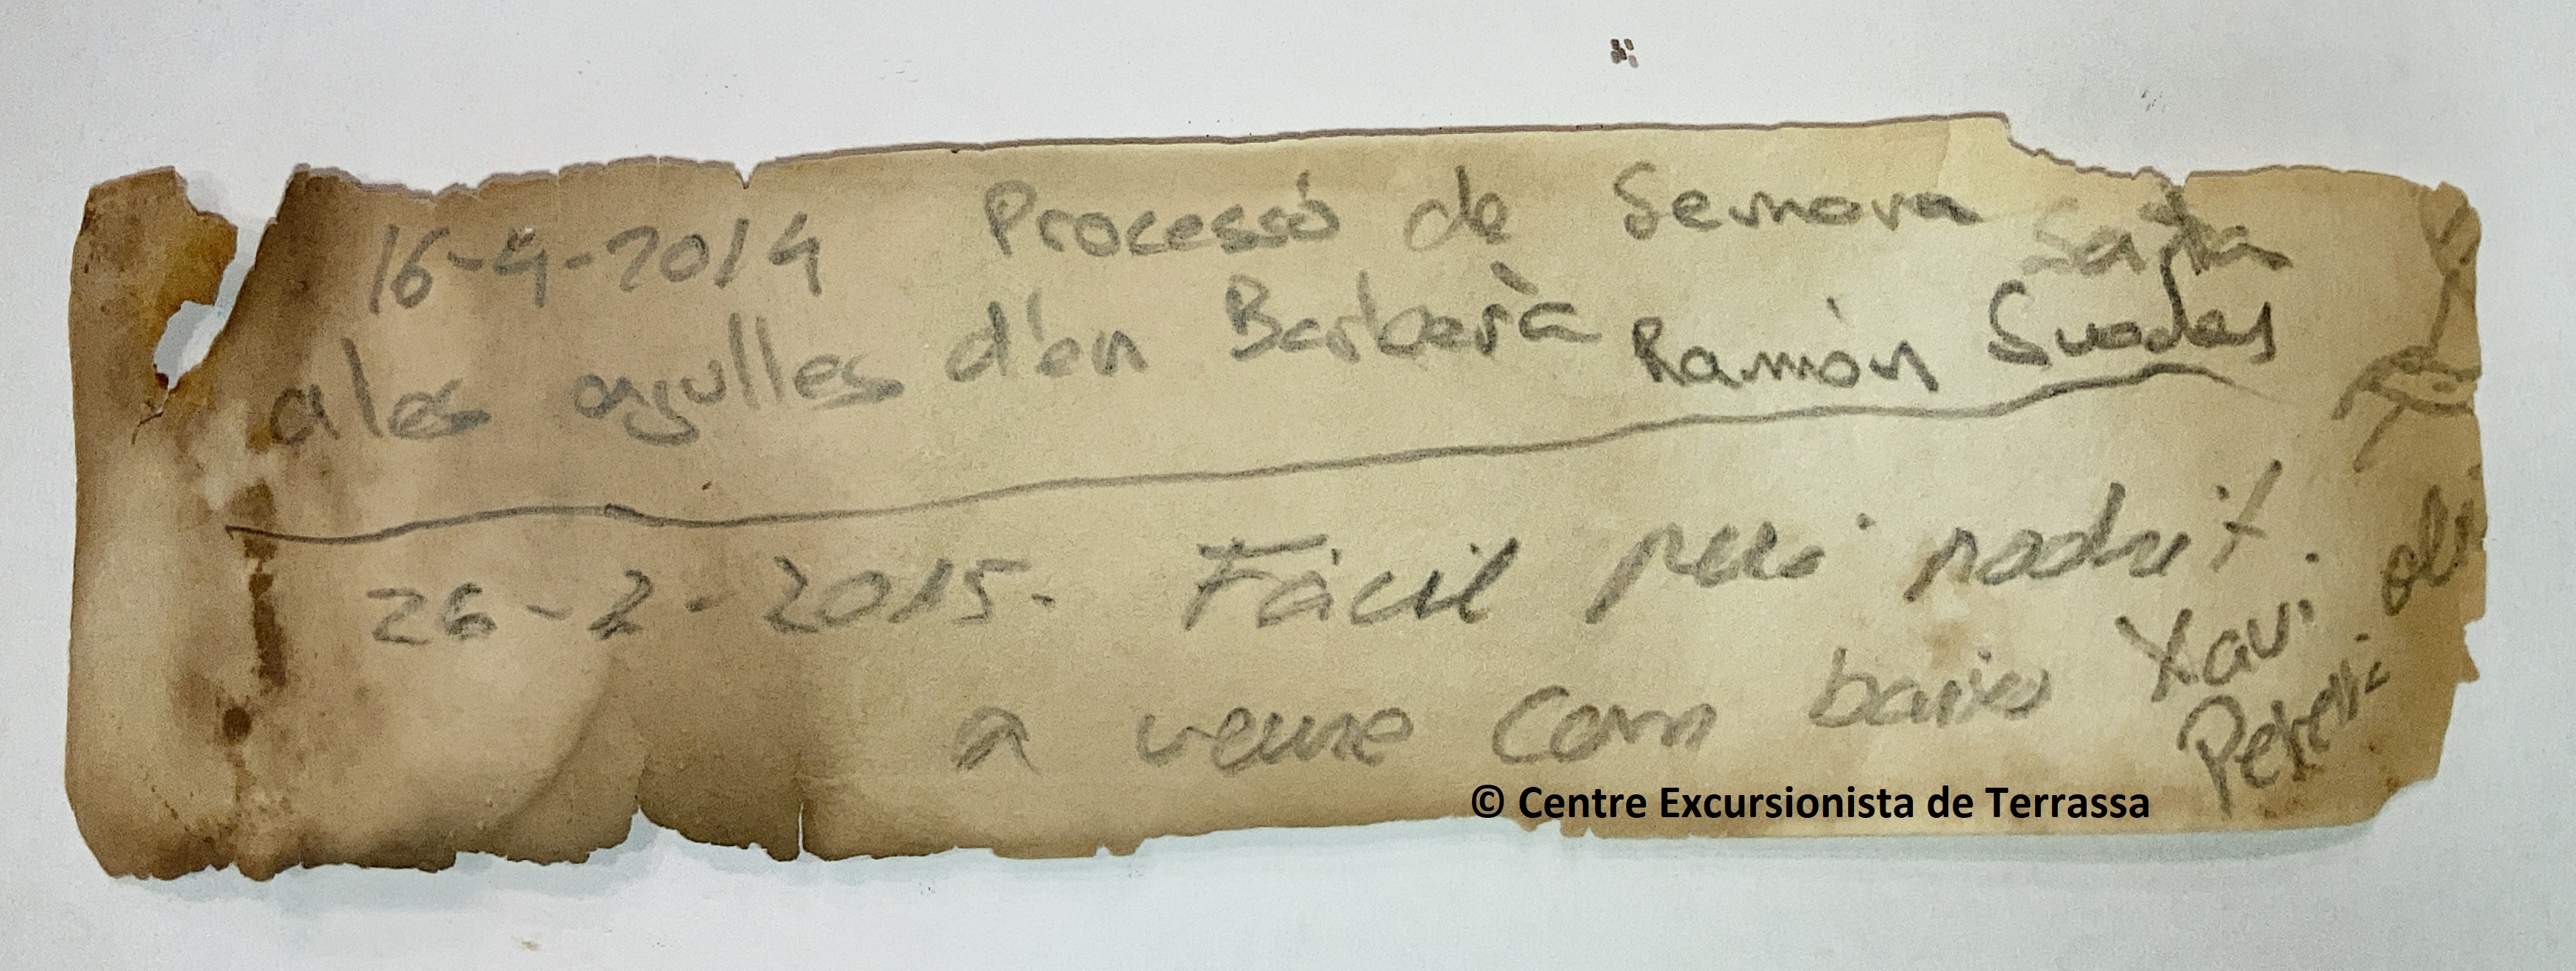 16-4-2014 Processó de Semana Santa
a les agulles d'en Barberà Ramón Suades
26-2-2015. Fàcil però podrit.
a veure com baixo Xavi
© Centre Excursionista de Terrassa